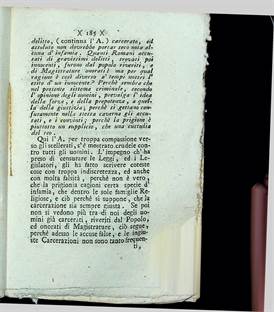 X 185 X
delitto, (continua l'A.) carcerato, ed
assoluto non dovrebbe portar seco nota al-
cuna d'infamia. Quanti Romani accu-
sati di gravissimi delitti, trovati poi
innocenti, furono dal popolo riveriti, e
di Magistrature onorati! ma per qual
ragione è così diverso a' tempi nostri l'
esito d'un innocente? Perchè sembra che
nel presente sistema criminale, secondo
l'opinione degli uomini, prevalga l'idea
della forza, e della prepotenza, a quel-
la della giustizia; perchè si gettano con-
fusamente nella stessa caverna gli accu-
sati, e i convinti; perchè la prigione è
piuttosto un supplicio, che una custodia
del reo.
Qui l'A. per troppa compassione ver-
so gli scellerati, s'è mostrato crudele con-
tro tutti gli uomini. L'impegno ch'ha
preso di censurare le Leggi, ed i Le-
gislatori, gli ha fatto scrivere coteste
cose con troppa indiscretezza, ed anche
con molta falsità, perchè non è vero,
che la prigionia cagioni certa specie d'
infamia, che dentro le sole famiglie Re-
ligiose, e ciò perchè si suppone, che la
carcerazione sia sempre giusta. Se poi
non si vedono più tra di noi degli uo-
mini già carcerati, riveriti dal Popolo,
ed onorati di Magistrature, ciò segue,
perchè adesso le accuse false, e le ingiu-
ste Carcerazioni non sono tanto frequen-
ti,